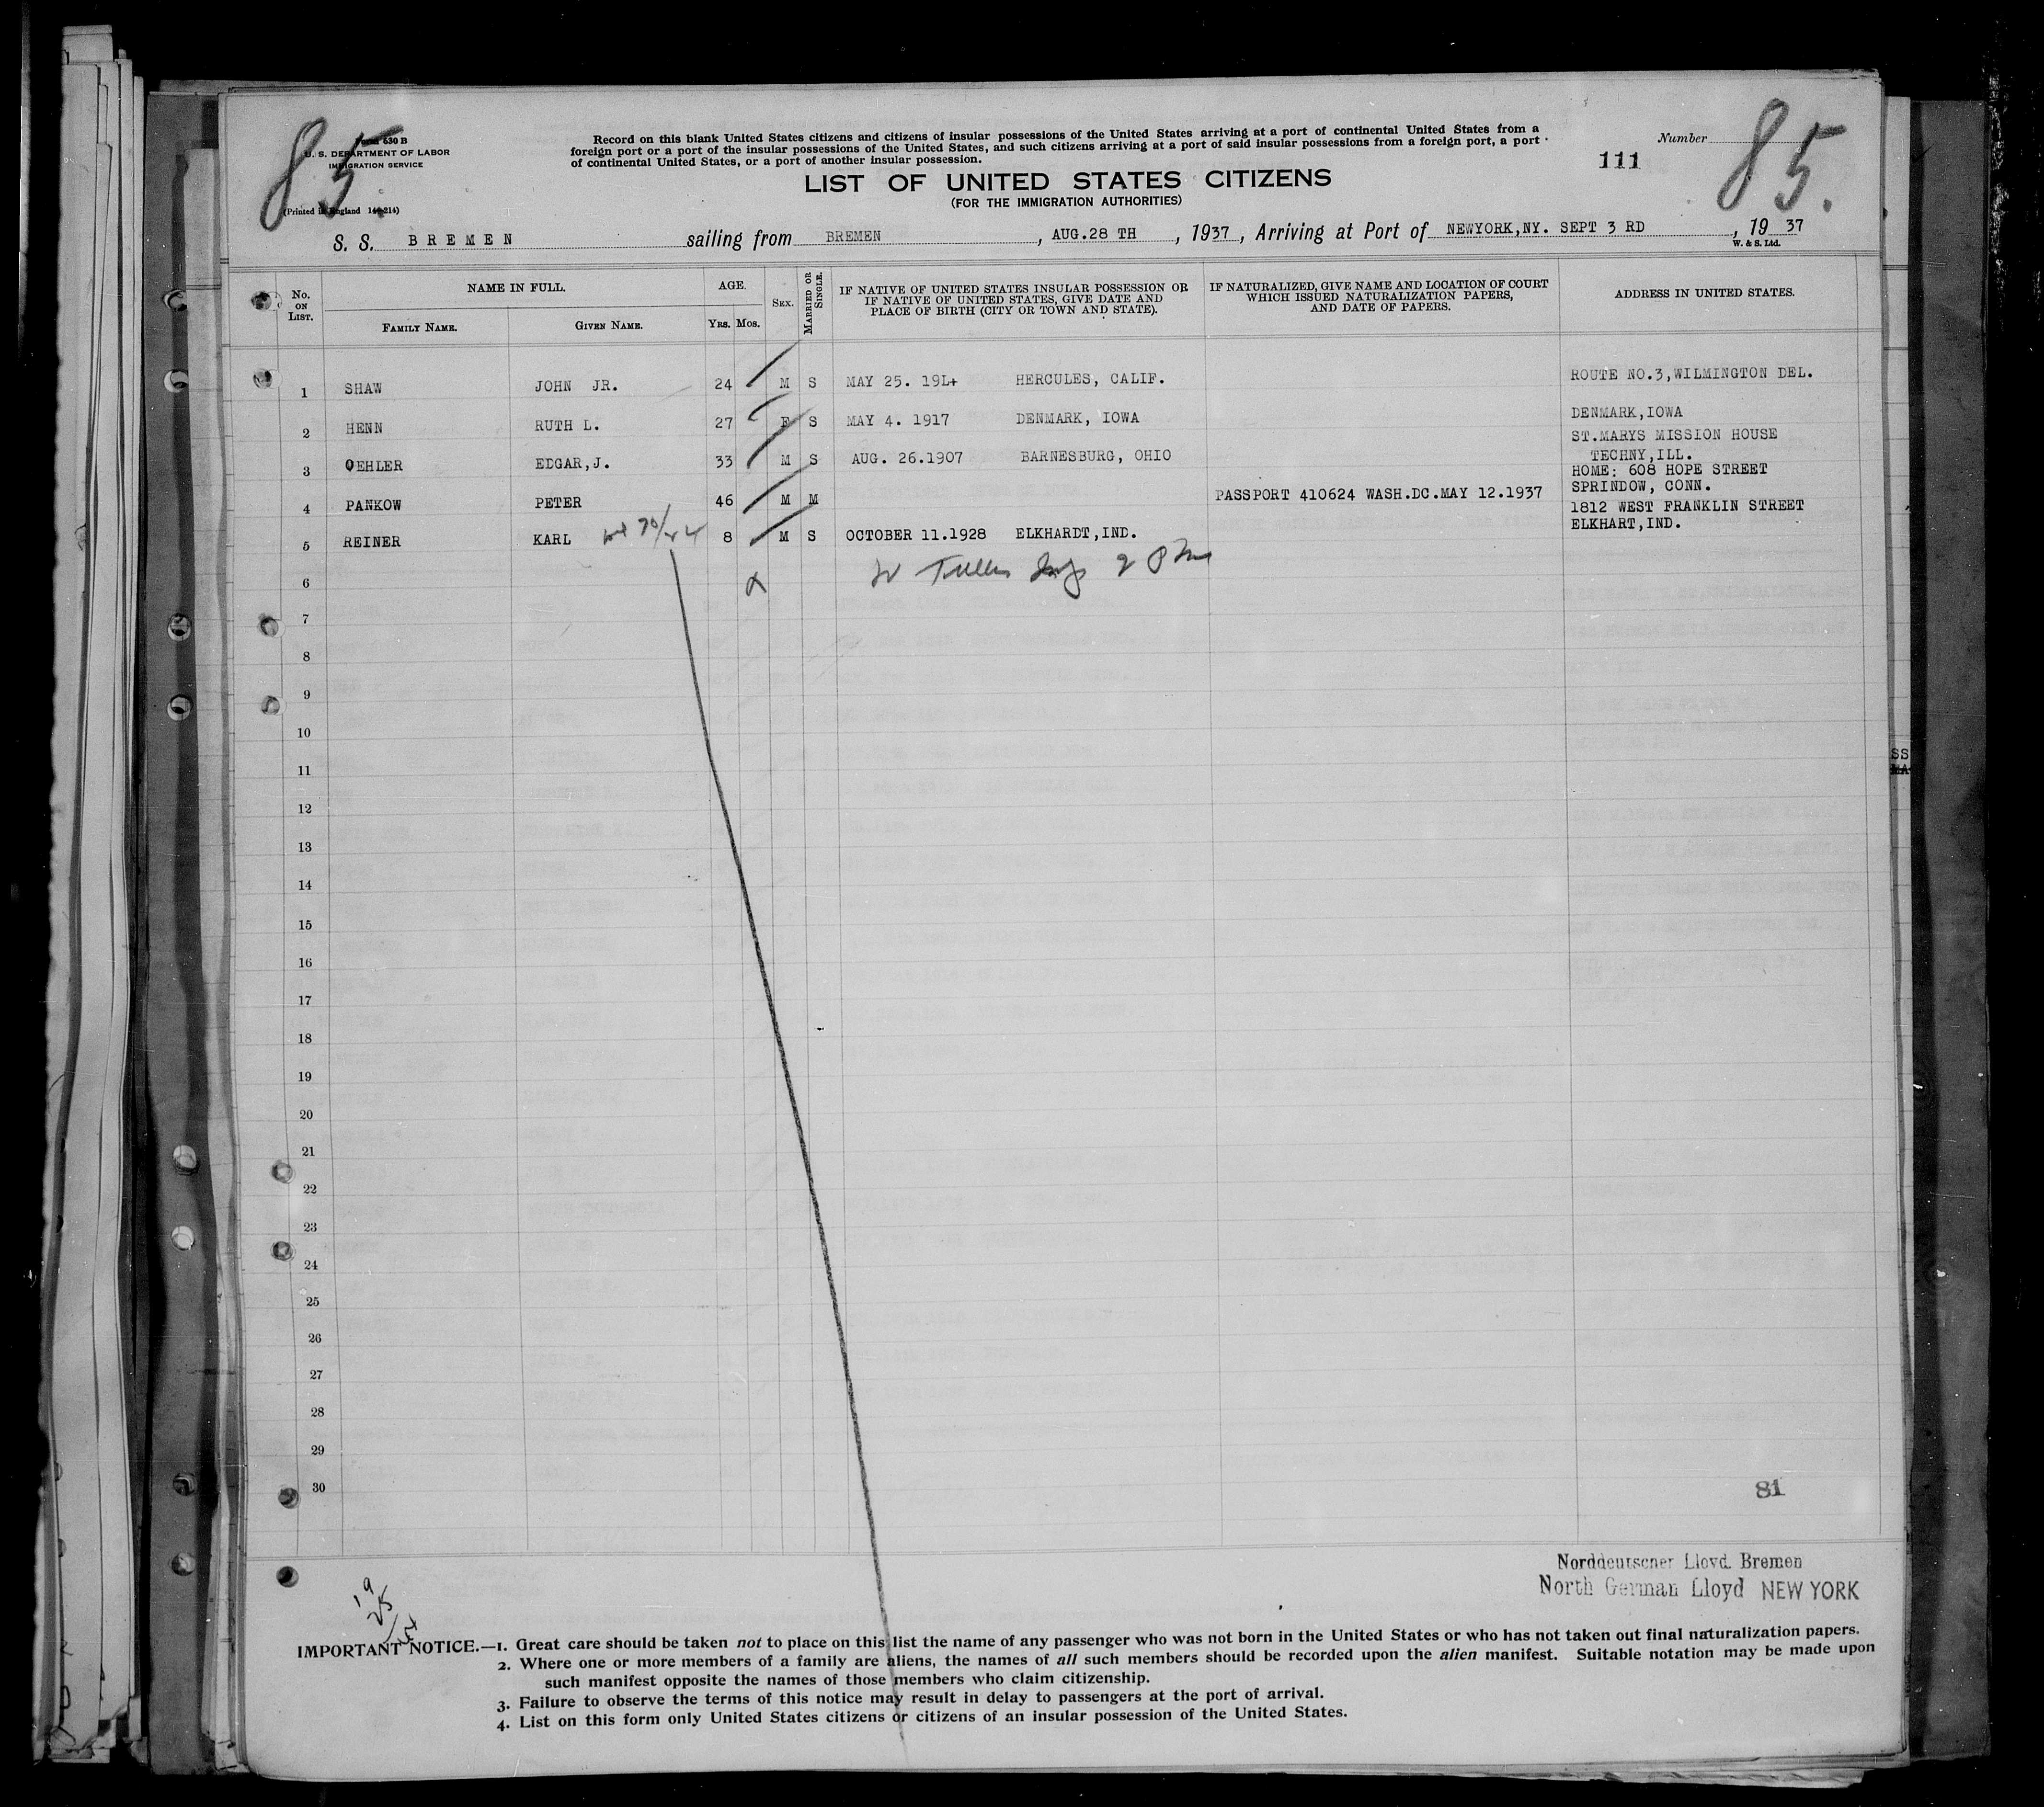 85.
Form 630 B
U. S. DEPARTMENT OF LABOR
IMMIGRATION SERVICE
(Printed in England 144-214)
Record on this blank United States citizens and citizens of insular possessions of the United States arriving at a port of continental United States from a
foreign port or a port of the insular possessions of the United States, and such citizens arriving at a port of said insular possessions from a foreign port, a port
of continental United States, or a port of another insular possession.
LIST OF UNITED STATES CITIZENS
(FOR THE IMMIGRATION AUTHORITIES)
Number
111
85.
S. S. BREMEN sailing from BREMEN, AUG.28 TH, 1937, Arriving at Port of NEWYORK,NY. SEPT 3 RD, 19 37
W. & S. Ltd.
No. ON LIST.
NAME IN FULL.
FAMILY NAME.
GIVEN NAME.
AGE.
YRS. MOS.
SEX.
MARRIED OR SINGLE.
IF NATIVE OF UNITED STATES INSULAR POSSESSION OR
IF NATIVE OF UNITED STATES, GIVE DATE AND
PLACE OF BIRTH (CITY OR TOWN AND STATE).
IF NATURALIZED, GIVE NAME AND LOCATION OF COURT
WHICH ISSUED NATURALIZATION PAPERS,
AND DATE OF PAPERS.
ADDRESS IN UNITED STATES.
1 SHAW JOHN JR. 24 M S MAY 25. 19L+ HERCULES, CALIF. ROUTE NO.3,WILMINGTON DEL.
2 HENN RUTH L. 27 F S MAY 4. 1917 DENMARK, IOWA DENMARK,IOWA
3 OEHLER EDGAR,J. 33 M S AUG. 26.1907 BARNESBURG, OHIO ST.MARYS MISSION HOUSE
TECHNY,ILL.
4 PANKOW PETER 46 M M PASSPORT 410624 WASH.DC.MAY 12.1937 HOME: 608 HOPE STREET
SPRINDOW, CONN.
5 REINER KARL 8 M S OCTOBER 11.1928 ELKHARDT,IND. 1812 WEST FRANKLIN STREET
ELKHART,IND.
6
7
8
9
10
11
12
13
14
15
16
17
18
19
20
21
22
23
24
25
26
27
28
29
30
81
Norddeutscher Lloyd Bremen
North German Lloyd NEW YORK
IMPORTANT NOTICE.—1. Great care should be taken not to place on this list the name of any passenger who was not born in the United States or who has not taken out final naturalization papers.
2. Where one or more members of a family are aliens, the names of all such members should be recorded upon the alien manifest. Suitable notation may be made upon
such manifest opposite the names of those members who claim citizenship.
3. Failure to observe the terms of this notice may result in delay to passengers at the port of arrival.
4. List on this form only United States citizens or citizens of an insular possession of the United States.